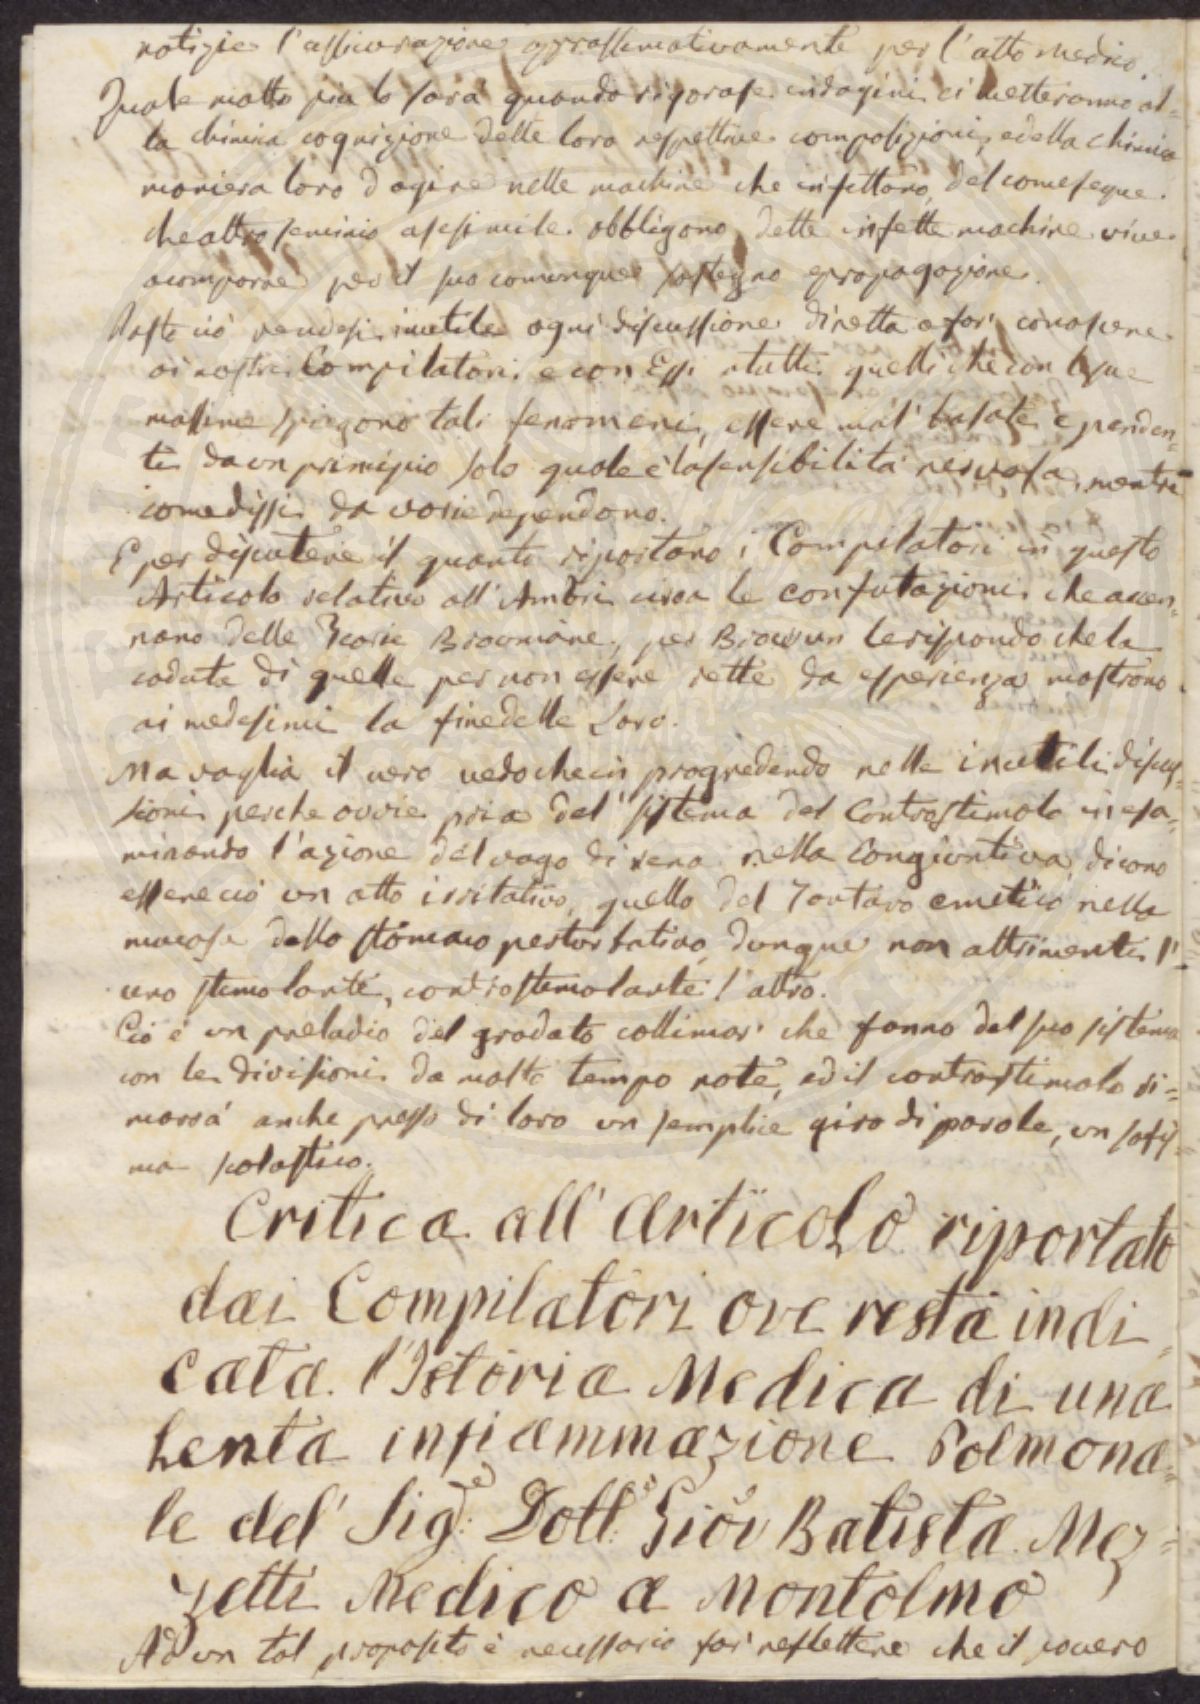 notizie l'assicurazione approssimativamente per l'atto medico.
Quale molto piu lo sarà quando rigorose indagini ci metteranno al=
la chimica cognizione delle loro respettive composizioni, e della chimica
maniera loro d'agire nelle machine che infettano, del come segue
che altro seminio asesimile obbligono dette infette machine vive
acomporre per il suo comunque sostegno epropagazione.
Posto ciò rendesi inutile ogni discussione diretta a far conoscere
ai nostri Compilatori e con Essi a tutti quelli che con
massime spiegono tali fenomeni, essere mal' basate e penden=
ti da un principio solo quale è la sensibilità nervosa, mentre
come dissi da varie dependono.
E per discutere il quanto riportano i Compilatori in questo
Articolo relativo all'Ambri circa le confutazioni che accen=
nano delle Teorie Browniane, per Browun le rispondo che la
caduta di quelle per non essere rette da esperienza mostrono
ai medesimi la fine delle Loro.
Ma vaglia il vero vedo che in progredendo nelle inutili discus=
sioni perche ovvie pria del' sistema del Controstimolo in esa=
minando l'azione del vago di rena nella Congiuntiva, dicono
essere ciò un atto irritativo, quello del Tartaro emetico nella
mucosa dello stomaco perturbativo, dunque non altrimenti l'
uno stimolante, controstimolante l'altro.
Ciò è un preludio del gradato collimar' che fanno del suo sistema
con le divisioni da molto tempo note, ed il controstimolo ri=
marrà anche presso di loro un semplice giro di parole, un sofis=
ma scolastico.
Critica all' Articolo riportato
dai Compilatori ove resta indi=
cata l'Istoria Medica di una
Lenta infiammazione Polmona=
le del' Sig.e Dott. Giov Batista Mez=
zetti Medico a Montolmo
Ad un tal proposito è necessario far reflettere che il povero